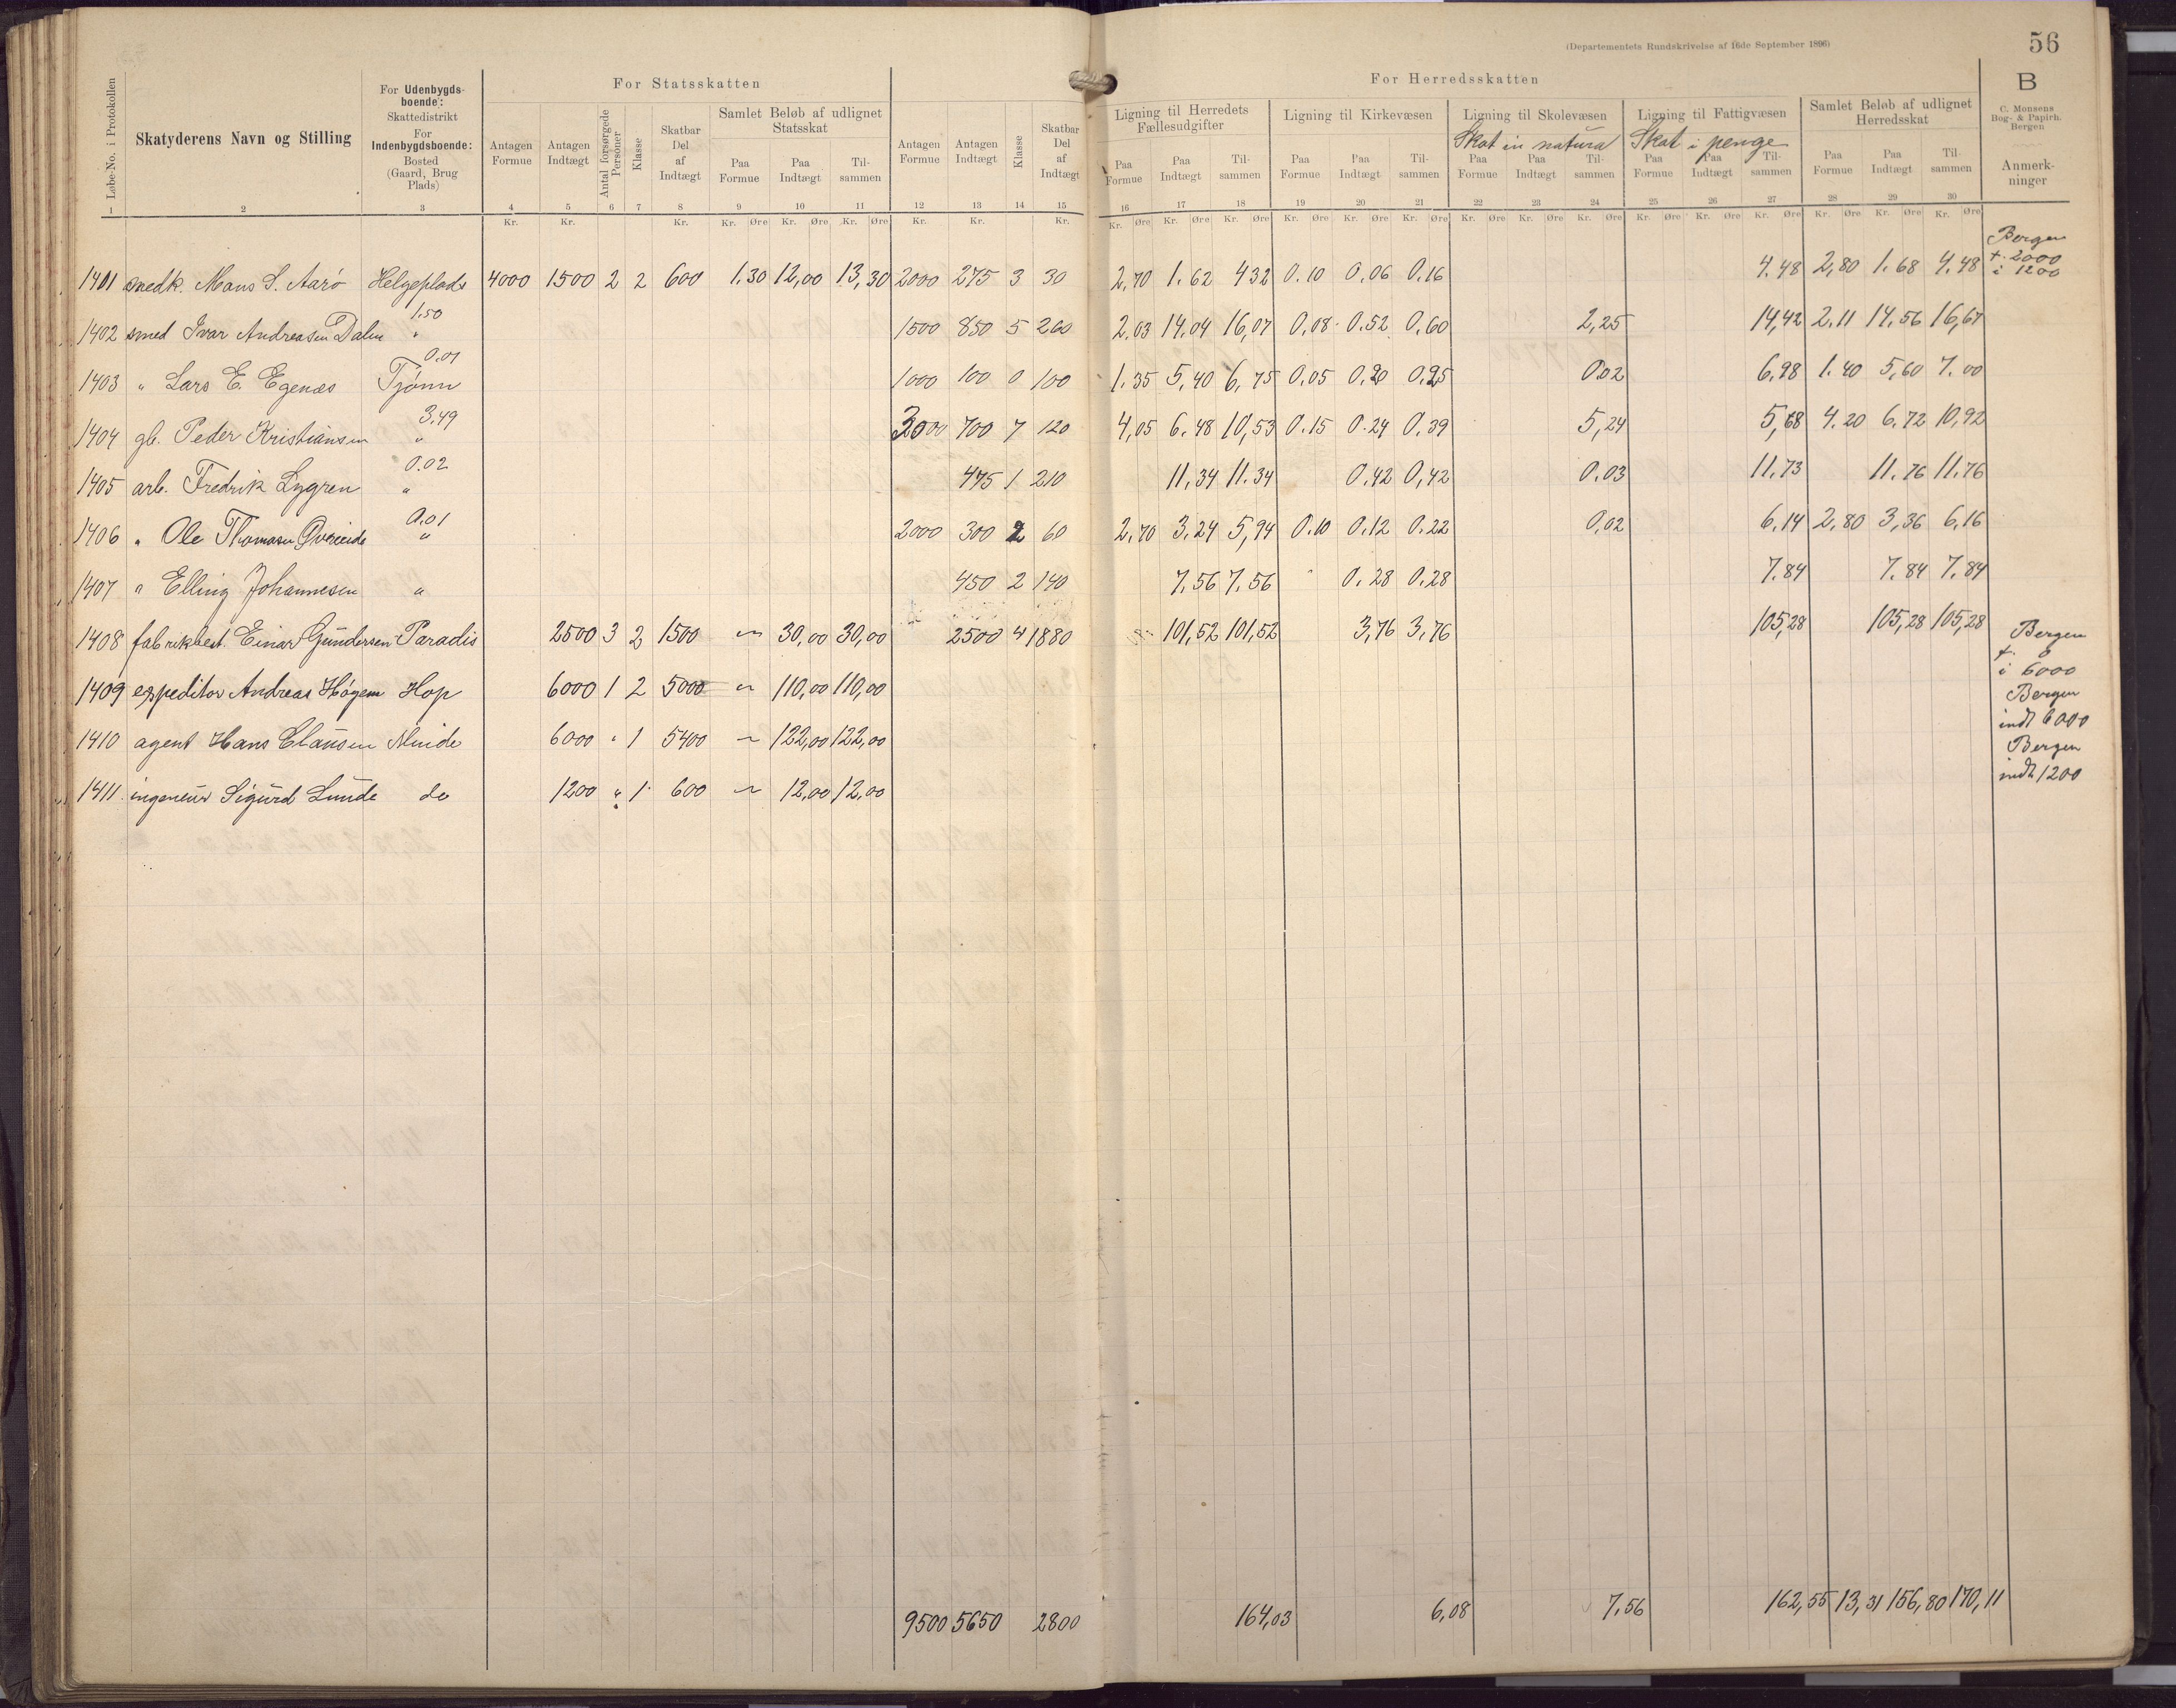 (Departementets Rundskrivelse af 16de September 1896)
56
Løbe-No. i Protokollen
Skatyderens Navn og Stilling
For Udenbygds-boende:
Skattedistrikt
For
Indenbygdsboende:
Bosted
(Gaard, Brug
Plads)
For Statsskatten
Antagen Formue
Antagen Indtægt
Antal forsørgede Personer
Klasse
Skatbar Del af Indtægt
Samlet Beløb af udlignet Statsskat
Paa Formue
Paa Indtægt
Til-sammen
Antagen Formue
Antagen Indtægt
Klasse
Skatbar Del af Indtægt
For Herredsskatten
Ligning til Herredets Fællesudgifter
Paa Formue
Paa Indtægt
Til-sammen
Ligning til Kirkevæsen
Paa Formue
Paa Indtægt
Til-sammen
Ligning til Skolevæsen
Skat in natura
Paa Formue
Paa Indtægt
Til-sammen
Ligning til Fattigvæsen
Skat i penge
Paa Formue
Paa Indtægt
Til-sammen
Samlet Beløb af udlignet Herredsskat
Paa Formue
Paa Indtægt
Til sammen
B
C. Monsens
Bog- & Papirh.
Bergen
Anmerk-
ninger
1 2 3 4 5 6 7 8 9 10 11 12 13 14 15 16 17 18 19 20 21 22 23 24 25 26 27 28 29 30
Kr. Kr. Kr. Kr. Øre Kr. Øre Kr. Øre Kr. Kr. Kr. Kr. Øre Kr. Øre Kr. Øre Kr. Øre Kr. Øre Kr. Øre Kr. Øre Kr. Øre Kr. Øre Kr. Øre Kr. Øre Kr. Øre Kr. Øre Kr. Øre Kr. Øre
1401 snedk. Mons S. Aarø Helgeplads 4000 1500 2 2 600 1.30 12,00 13,30 2000 275 3 30 2,70 1.62 432 0.10 0,06 0.16 4.48 2,80 1.68 4.48 Bergen
f. 2000
i 1200
1.50
1402 smed Ivar Andreasen Dalen " 1500 850 5 260 2.03 14.04 16,07 0,08 0.52 0,60 2,25 14,42 2.11 14.56 16,67
0.01
1403 " Lars E. Egenæs Tjønn 1000 100 0 100 1.35 5,40 6,75 0.05 0,20 0.25 0.02 6,98 1.40 5,60 7.00
3.49
1404 gb. Peder Kristiansen " 3000 700 7 120 4,05 6.48 10,53 0.15 0.24 0,39 5,24 5,68 4.20 6.72 10,92
0.02
1405 arb. Fredrik Lygren " 475 1 210 11,34 11.34 0.42 0,42 0.03 11.73 11.76 11.76
0.01
1406 " Ole Thomasen Øvreeide " 2000 300 2 60 2.70 3.24 5,94 0.10 0.12 0.22 0,02 6.14 2,80 3,36 6,16
1407 " Elling Johannesen " 450 2 140 7.56 7.56 0.28 0.28 7.84 7.84 7.84
1408 fabrikbest. Einar Gundersen Paradis 2500 3 2 1500 " 30,00 30,00 2500 4 1880 101,52 101,52 3,76 3,76 105,28 105,28 105,28
Bergen
f. 0
i 6000
1409 expeditor Andreas Høgem Hop 6000 1 2 5000 " 110,00 110,00
Bergen
indt 6000
1410 agent Hans Clausen Minde 6000 " 1 5400 " 122,00 122,00
Bergen
indt 1200
1411 ingeneur Sigurd Lunde do 1200 " 1 600 " 12,00 12,00
9500 5650 2800 164,03 6,08 7.56 162,55 13,31 156,80 170,11